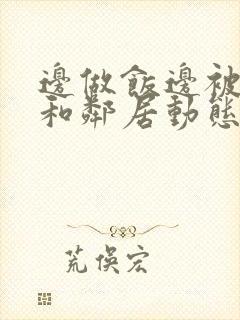 邊做飯邊被
和鄰居動態
荒俁宏